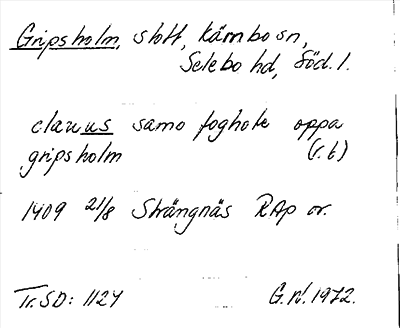 Gripsholm, slott, Kärnbo sn,
Selebo hd, Söd. l.
clauus samo foghote oppa
gripsholm (r. b)
1409 21/8 Strängnäs RAp or.
Tr. SD: 1124 G.W. 1972.